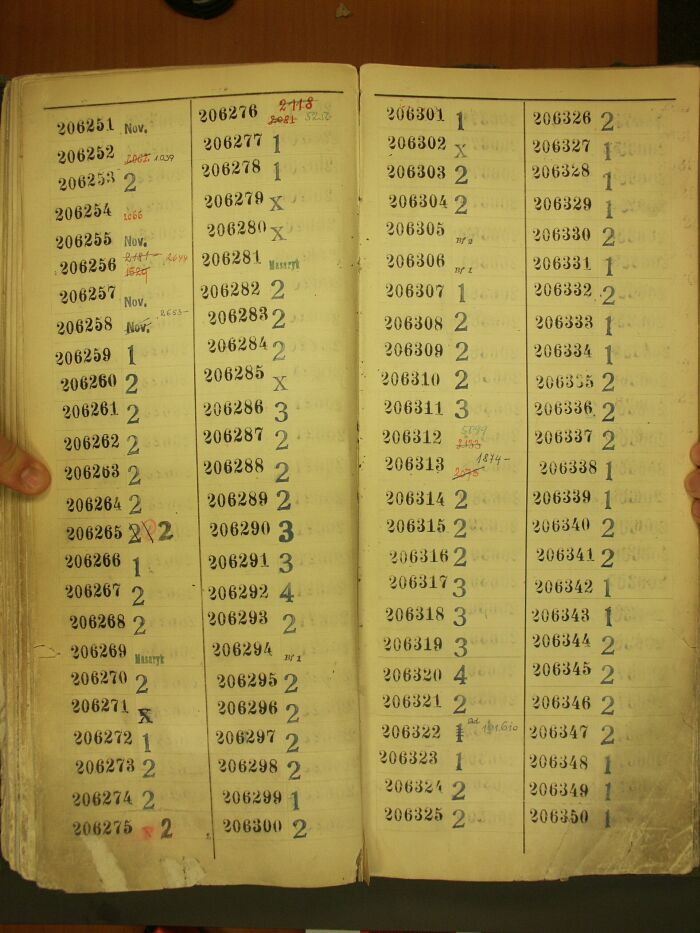 206251 Nov.
206252 2062 1039
206253 2
206254 1066
206255 Nov.
206256 2181- 2644
1529
206257 Nov.
206258 Nov. 2653-
206259 1
206260 2
206261 2
206262 2
206263 2
206264 2
206265 2 2
206266 1
206267 2
206268 2
206269 Masaryk
206270 2
206271 x
206272 1
206273 2
206274 2
206275 x 2
206276 2118
2081 5256
206277 1
206278 1
206279 x
206280 x
206281 Masaryk
206282 2
206283 2
206284 2
206285 x
206286 3
206287 2
206288 2
206289 2
206290 3
206291 3
206292 4
206293 2
206294 Bf 1
206295 2
206296 2
206297 2
206298 2
206299 1
206300 2
206301 1
206302 x
206303 2
206304 2
206305 Bf 2
206306 Bf 1
206307 1
206308 2
206309 2
206310 2
206311 3
206312
206313 1874-
206314 2
206315 2
206316 2
206317 3
206318 3
206319 3
206320 4
206321 2
206322 1
206323 1
206324 2
206325 2
206326 2
206327 1
206328 1
206329 1
206330 2
206331 1
206332 2
206333 1
206334 1
206335 2
206336 2
206337 2
206338 1
206339 1
206340 2
206341 2
206342 1
206343 1
206344 2
206345 2
206346 2
206347 2
206348 1
206349 1
206350 1